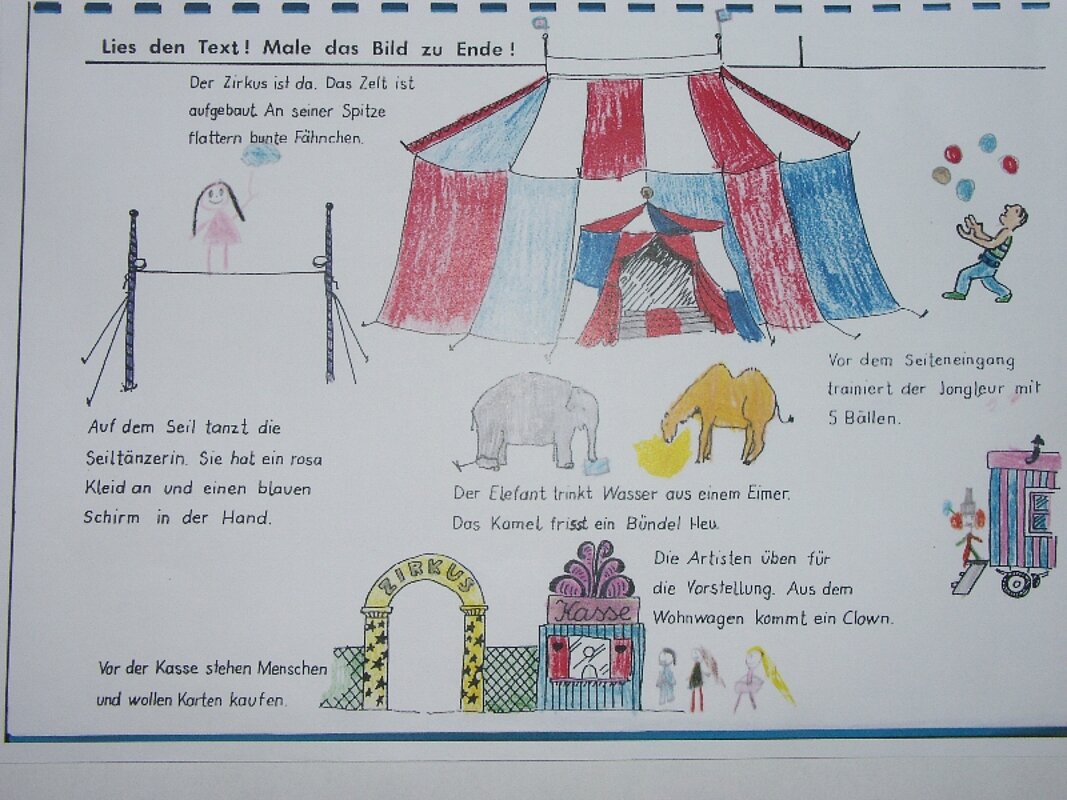 Lies den Text! Male das Bild zu Ende!
Der Zirkus ist da. Das Zelt ist
aufgebaut. An seiner Spitze
flattern bunte Fähnchen.
Vor dem Seiteneingang
trainiert der Jongleur mit
5 Bällen.
Auf dem Seil tanzt die
Seiltänzerin. Sie hat ein rosa
Kleid an und einen blauen
Schirm in der Hand.
Der Elefant trinkt Wasser aus einem Eimer.
Das Kamel frisst ein Bündel Heu.
Die Artisten üben für
die Vorstellung. Aus dem
Wohnwagen kommt ein Clown.
ZIRKUS
Kasse
Vor der Kasse stehen Menschen
und wollen Karten kaufen.